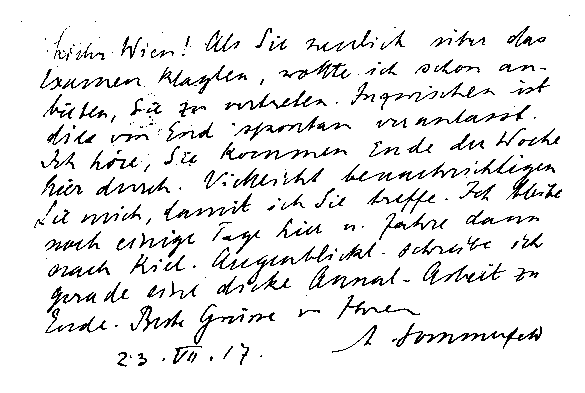 Lieber Wien! Als Sie neulich über das
Examen klagten, wollte ich schon an-
bieten, Sie zu vertreten. Inzwischen ist
dies von End spontan veranlasst.
Ich höre, Sie kommen Ende der Woche
hier durch. Vielleicht benachrichtigen
Sie mich, damit ich Sie treffe. Ich bleibe
noch einige Tage hier u. fahre dann
nach Kiel. Augenblickl. schreibe ich
gerade eine dicke Annal-Arbeit zu
Ende. Beste Grüsse v. Ihrem
A Sommerfeld
23.VII.17.